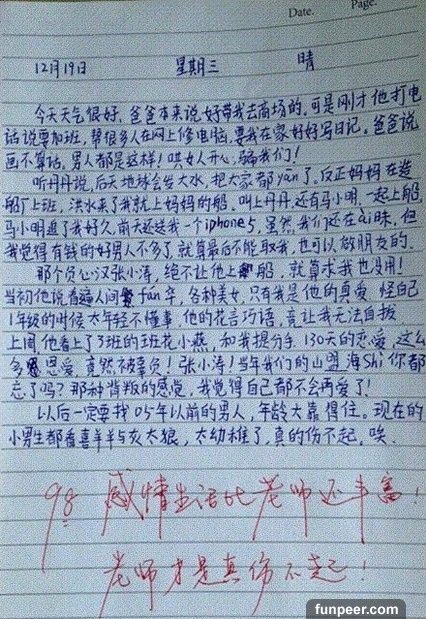 Date. Page.
12月19日 星期三 晴
今天天气很好，爸爸本来说好带我去商场的，可是刚才他打电
话说要加班，帮很多人在网上修电脑，要我在家好好写日记，爸爸说
画不算话，男人都是这样！哄女人开心，骗我们！
听丹丹说，后天地球会发大水，把大家都yan了。反正妈妈在造
船厂上班，洪水来了我就上妈妈的船，叫上丹丹还有马小明，一起上船，
马小明追了我好久，前天还送我一个iphone5，虽然我们还在ai昧，但
我觉得有钱的好男人不多了，就算最后不能取我，也可以做朋友的。
那个负心汉张小涛，绝不让他上船，就算求我也没用！
当初他说看遍人间fan华，各种美女，只有我是他的真爱，怪自己
1年级的时候太年轻不懂事，他的花言巧语，竟让我无法自拔
上周他看上了3班的班花小燕，和我提分手，130天的恋爱，这么
多恩爱，竟然被辜负！张小涛！当年我们的山盟海Shi你都
忘了吗？那种背叛的感觉，我觉得自己都不会再爱了！
以后一定要找05年以前的男人，年龄大靠得住。现在的
小男生都看喜羊羊与灰太狼，太幼稚了，真的伤不起，唉。
98 感情生活比老师还丰富！
老师才是真伤不起！
funpeer.com